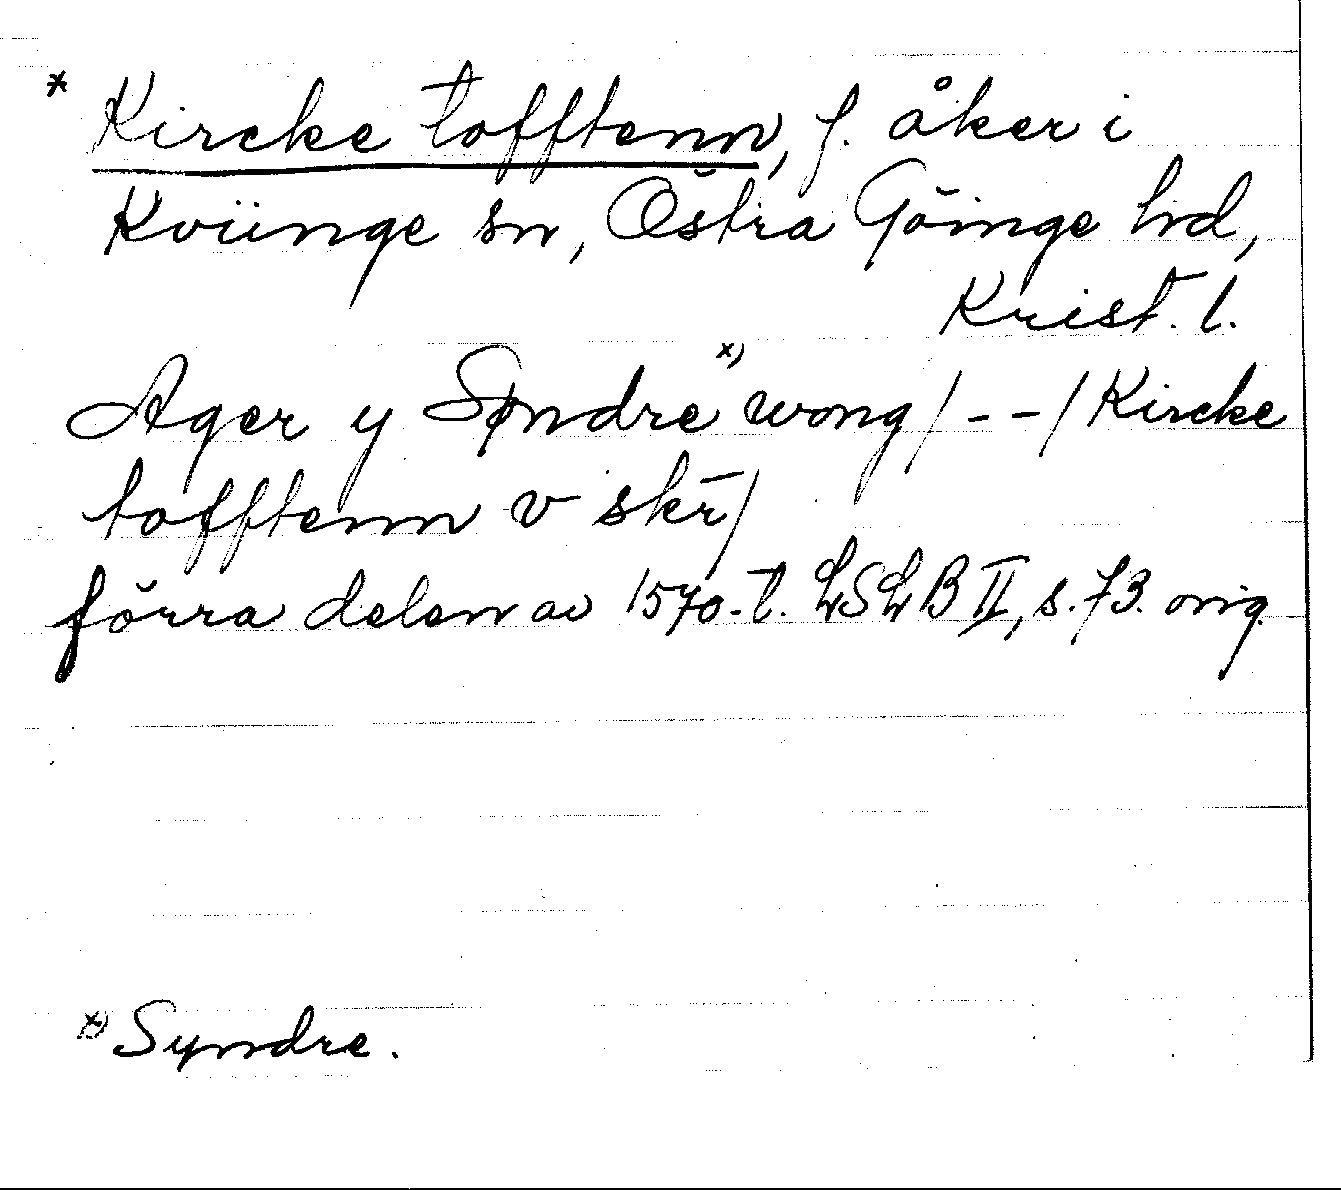 * Kircke tofftenn, f. åker i
Kviinge sn, Östra Göinge hd,
Krist. l.
Ager y Søndre x) wong / - - / Kircke
tofftenn v skr̄ /
förra delen av 1570-t. LSLB II, s. 73. orig.
x) Syndre.